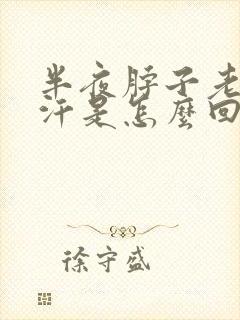 半夜脖子老
汗是怎麼回
徐守盛